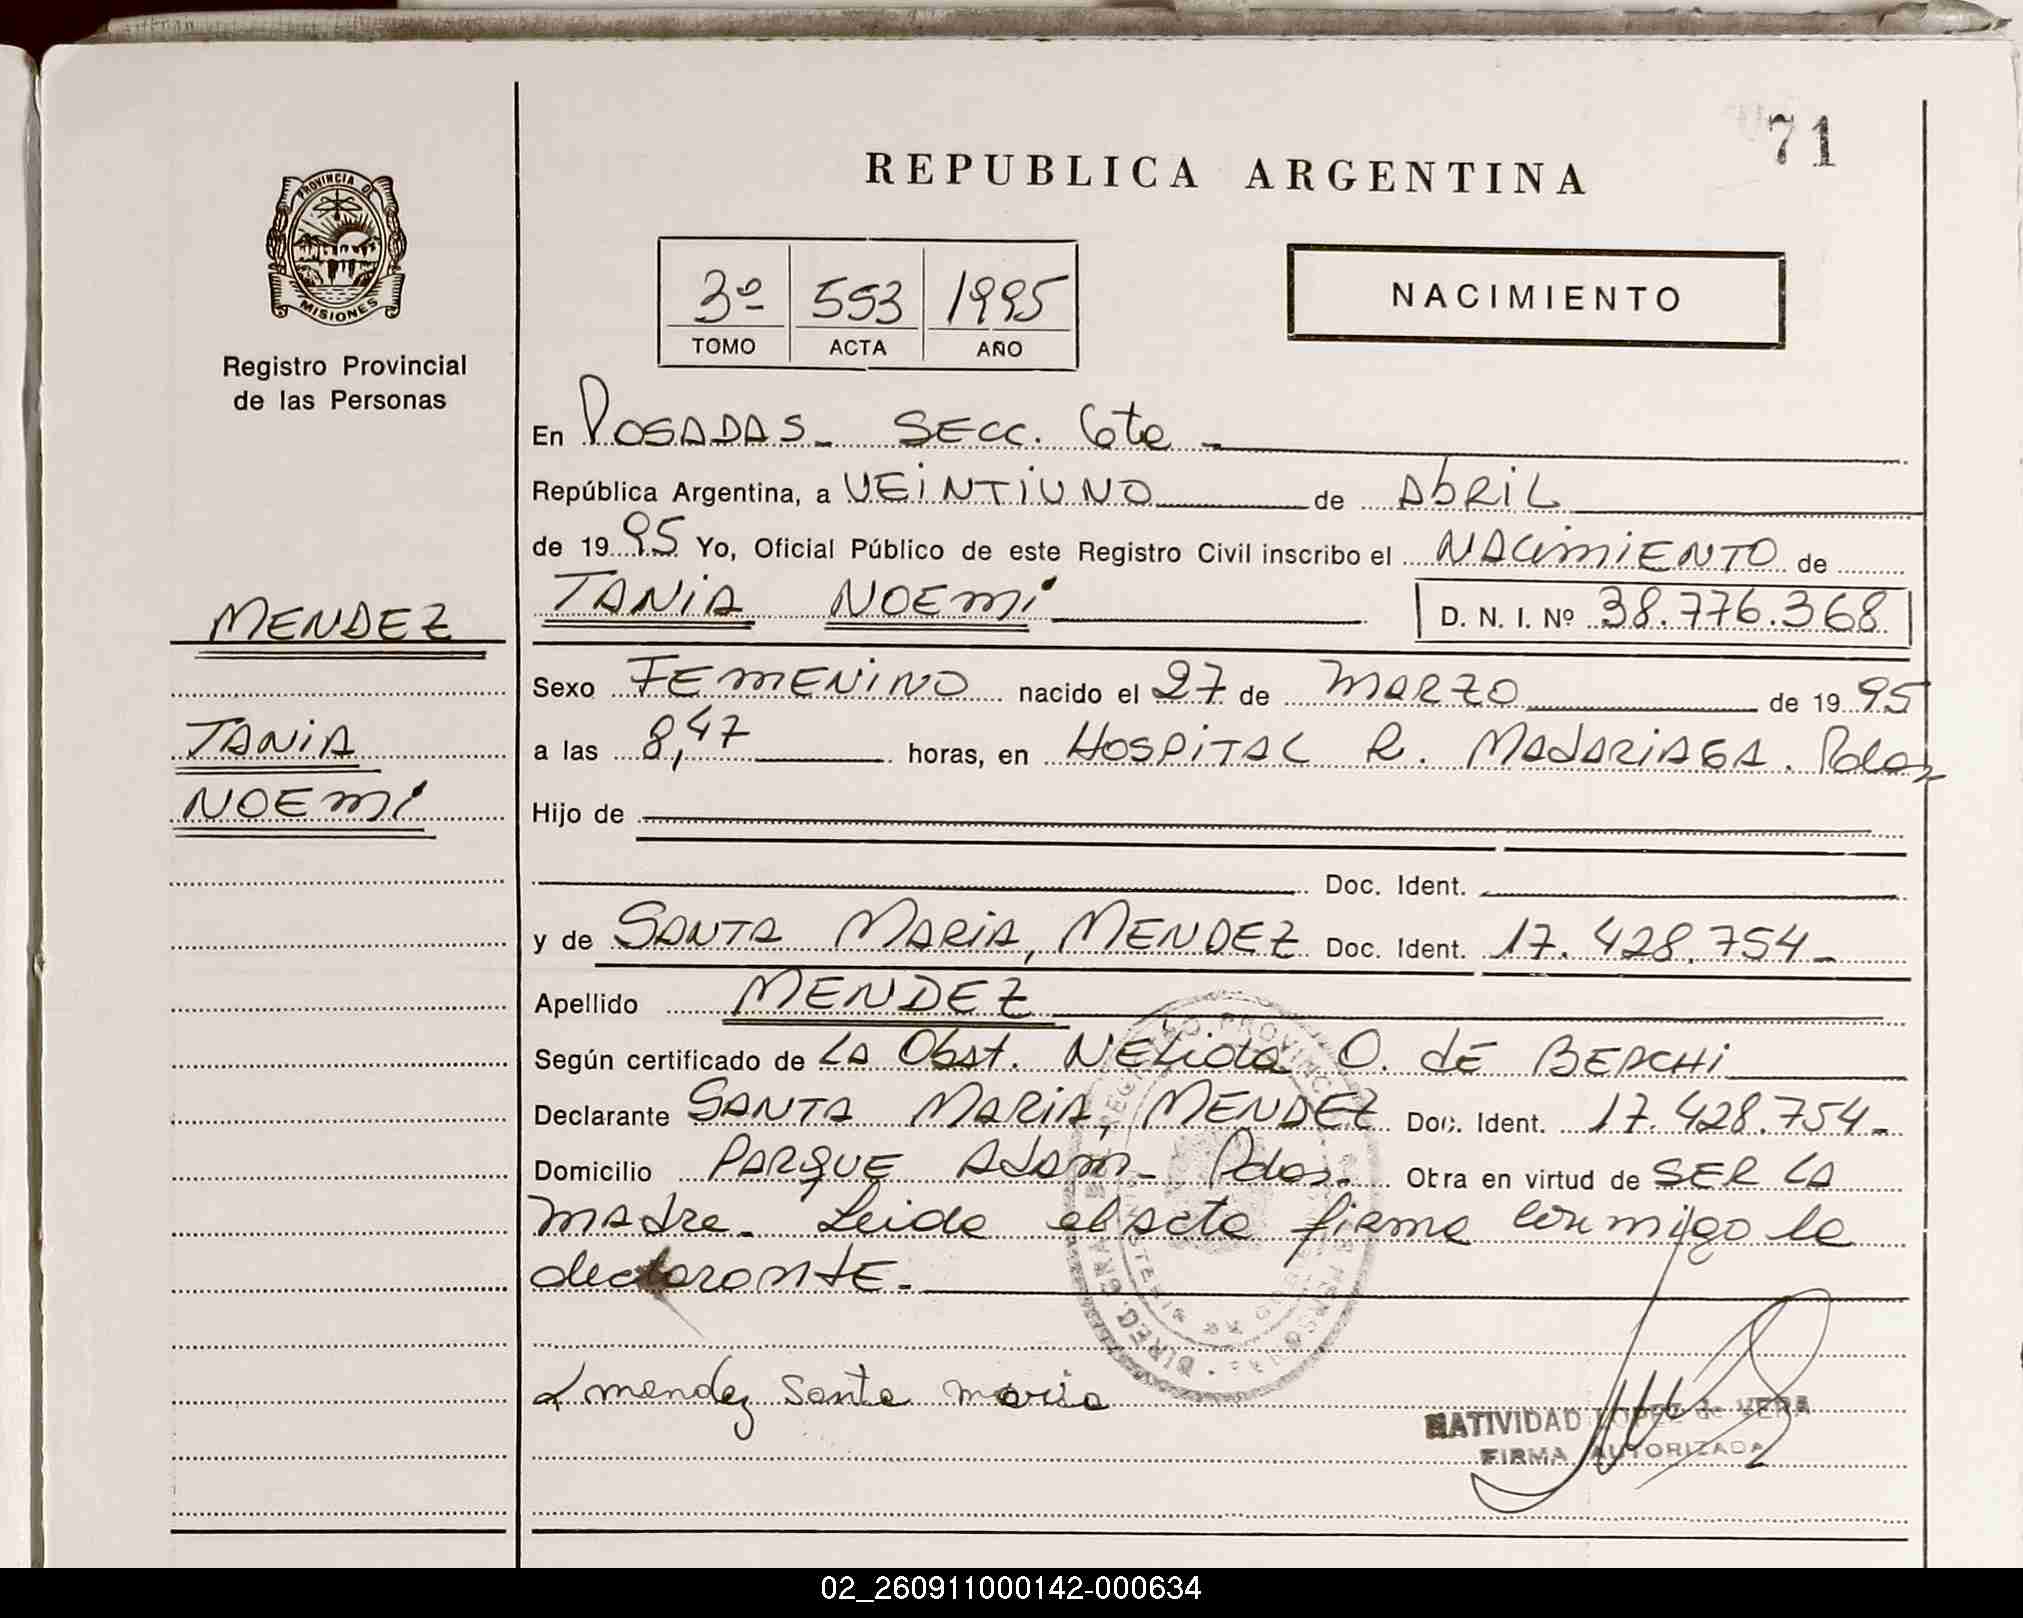 71
REPUBLICA ARGENTINA
PROVINCIA DE
MISIONES
Registro Provincial
de las Personas
3º 553 1995
TOMO ACTA AÑO
NACIMIENTO
En POSADAS - SECC. 6ta -
República Argentina, a VEINTIUNO de ABRIL
de 19 95 Yo, Oficial Público de este Registro Civil inscribo el NACIMIENTO de
TANIA NOEMI D. N. I. Nº 38.776.368
MENDEZ
TANIA
NOEMI
Sexo FEMENINO nacido el 27 de MARZO de 19 95
a las 8,47 horas, en HOSPITAL R. MADARIAGA. Pdas
Hijo de
Doc. Ident.
y de SANTA MARIA, MENDEZ Doc. Ident. 17.428.754-
Apellido MENDEZ
Según certificado de LA Obst. NELida O. dE BERCHI
Declarante SANTA MARIA, MENDEZ Doc. Ident. 17.428.754-
Domicilio PARQUE ADAM - Pdas. Obra en virtud de SER LA
MAdre - Leida el acta firma conmigo la
declarante -
Mendez Santa Maria
NATIVIDAD LOPEZ de VERA
FIRMA AUTORIZADA
02_260911000142-000634